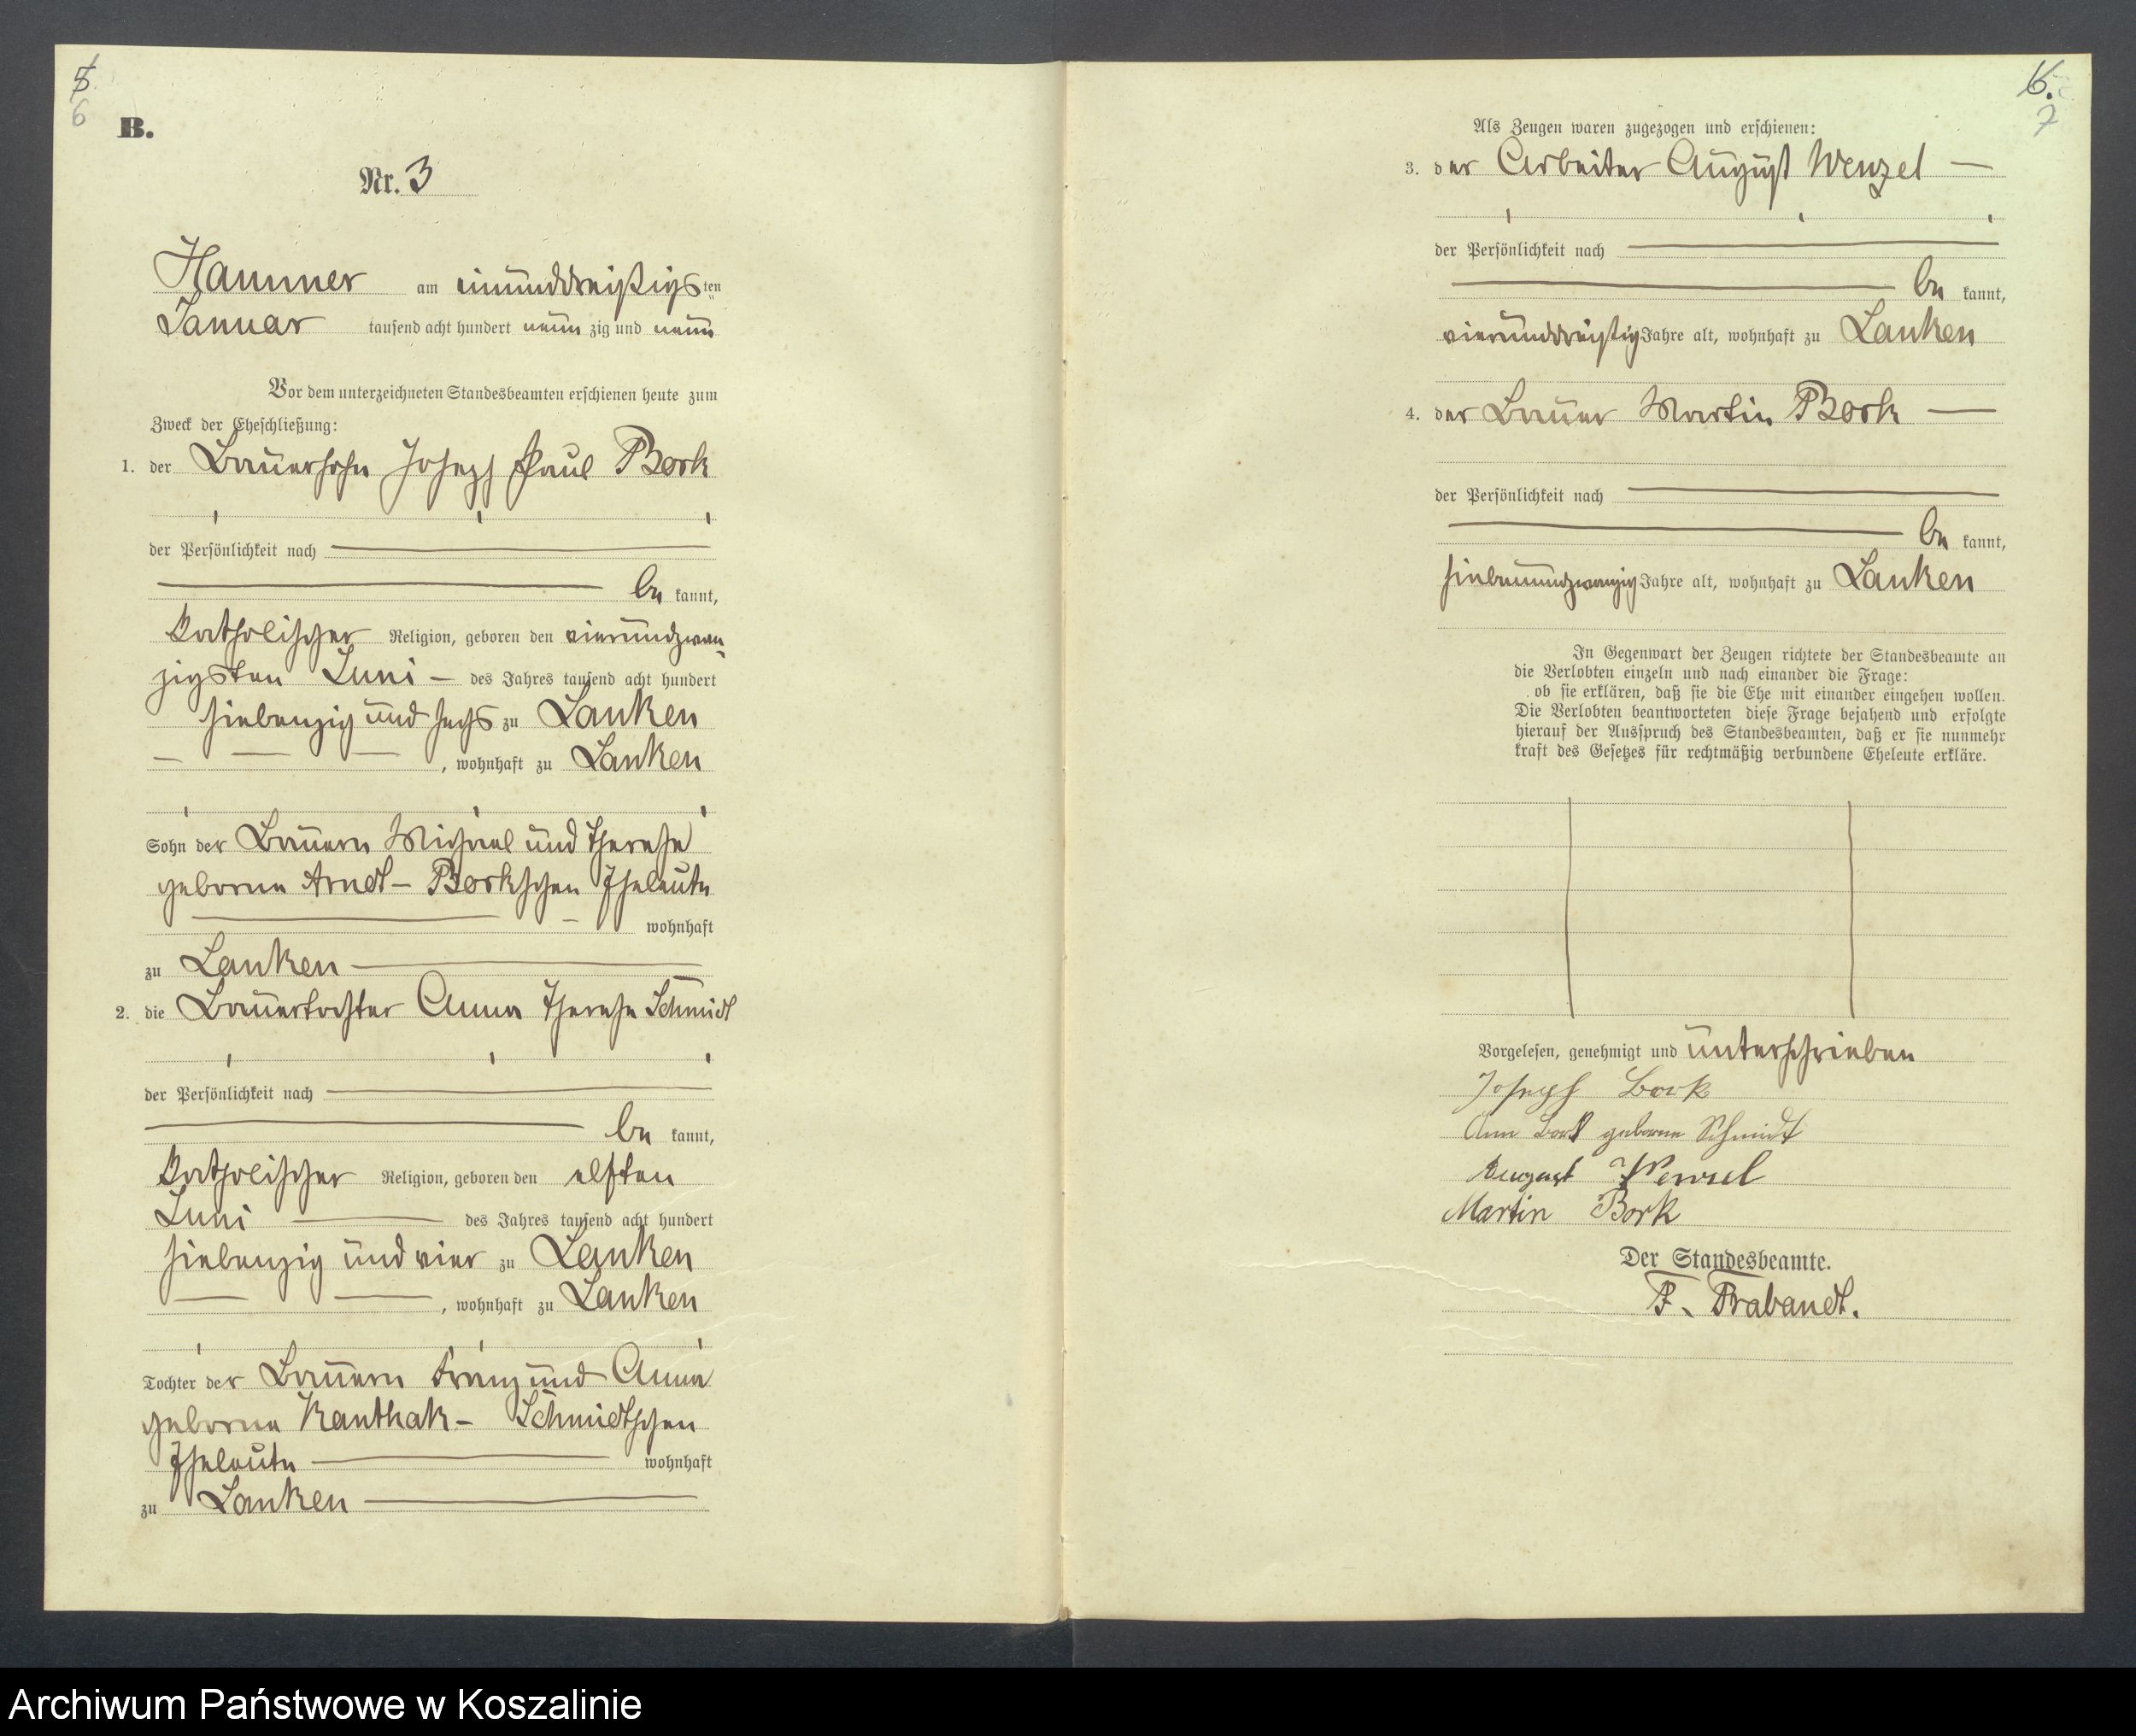 5
6
B.
Nr. 3
Hammer am einunddreißigsten
Januar tausend acht hundert neunzig und neun
Vor dem unterzeichneten Standesbeamten erschienen heute zum
Zweck der Eheschließung:
1. der Bauersohn Joseph Paul Bork
der Persönlichkeit nach
be kannt,
katholischer Religion, geboren den vierundzwan-
zigsten Juni - des Jahres tausend acht hundert
siebenzig und sechs zu Lanken
, wohnhaft zu Lanken
Sohn der Bauern Michael und Therese
geborne Arndt - Borkschen Eheleute
wohnhaft
zu Lanken
2. die Bauertochter Anna Therese Schmidt
der Persönlichkeit nach
be kannt,
katholischer Religion, geboren den elften
Juni des Jahres tausend acht hundert
siebenzig und vier zu Lanken
, wohnhaft zu Lanken
Tochter der Bauern Franz und Anna
geborne Kanthak - Schmidtschen
Eheleute wohnhaft
zu Lanken
6.
7
Als Zeugen waren zugezogen und erschienen:
3. der Arbeiter August Wenzel
der Persönlichkeit nach
be kannt,
vierunddreißig Jahre alt, wohnhaft zu Lanken
4. der Bauer Martin Bork
der Persönlichkeit nach
be kannt,
siebenundzwanzig Jahre alt, wohnhaft zu Lanken
In Gegenwart der Zeugen richtete der Standesbeamte an
die Verlobten einzeln und nach einander die Frage:
ob sie erklären, daß sie die Ehe mit einander eingehen wollen.
Die Verlobten beantworteten diese Frage bejahend und erfolgte
hierauf der Ausspruch des Standesbeamten, daß er sie nunmehr
kraft des Gesetzes für rechtmäßig verbundene Eheleute erkläre.
Vorgelesen, genehmigt und unterschrieben
Joseph Bork
Ann Bork geborne Schmidt
August Wenzel
Martin Bork
Der Standesbeamte.
F. Brabandt.
Archiwum Państwowe w Koszalinie